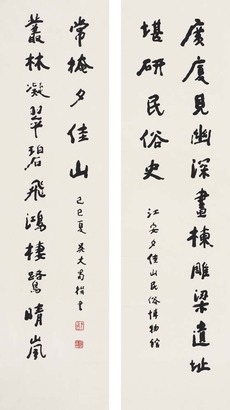 廣廈見幽深畫棟雕梁遺址
堪研民俗史
江安夕佳山民俗博物館
叢林凝翠碧飛鴻棲鷺晴嵐
常掩夕佳山
己巳夏 吳丈蜀撰書